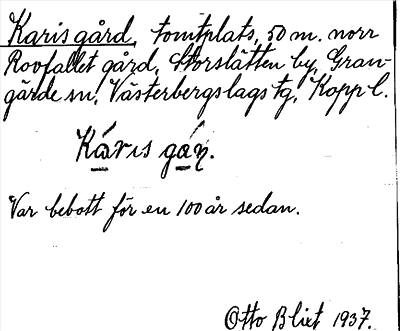 Karis gård, tomtplats, 50 m. norr
Rovfallet gård, Storslätten by, Gran-
gärde sn, Västerbergslags tg, Kopp l.
Káris gán.
Var bebott för en 100 år sedan.
Otto Blixt 1937.